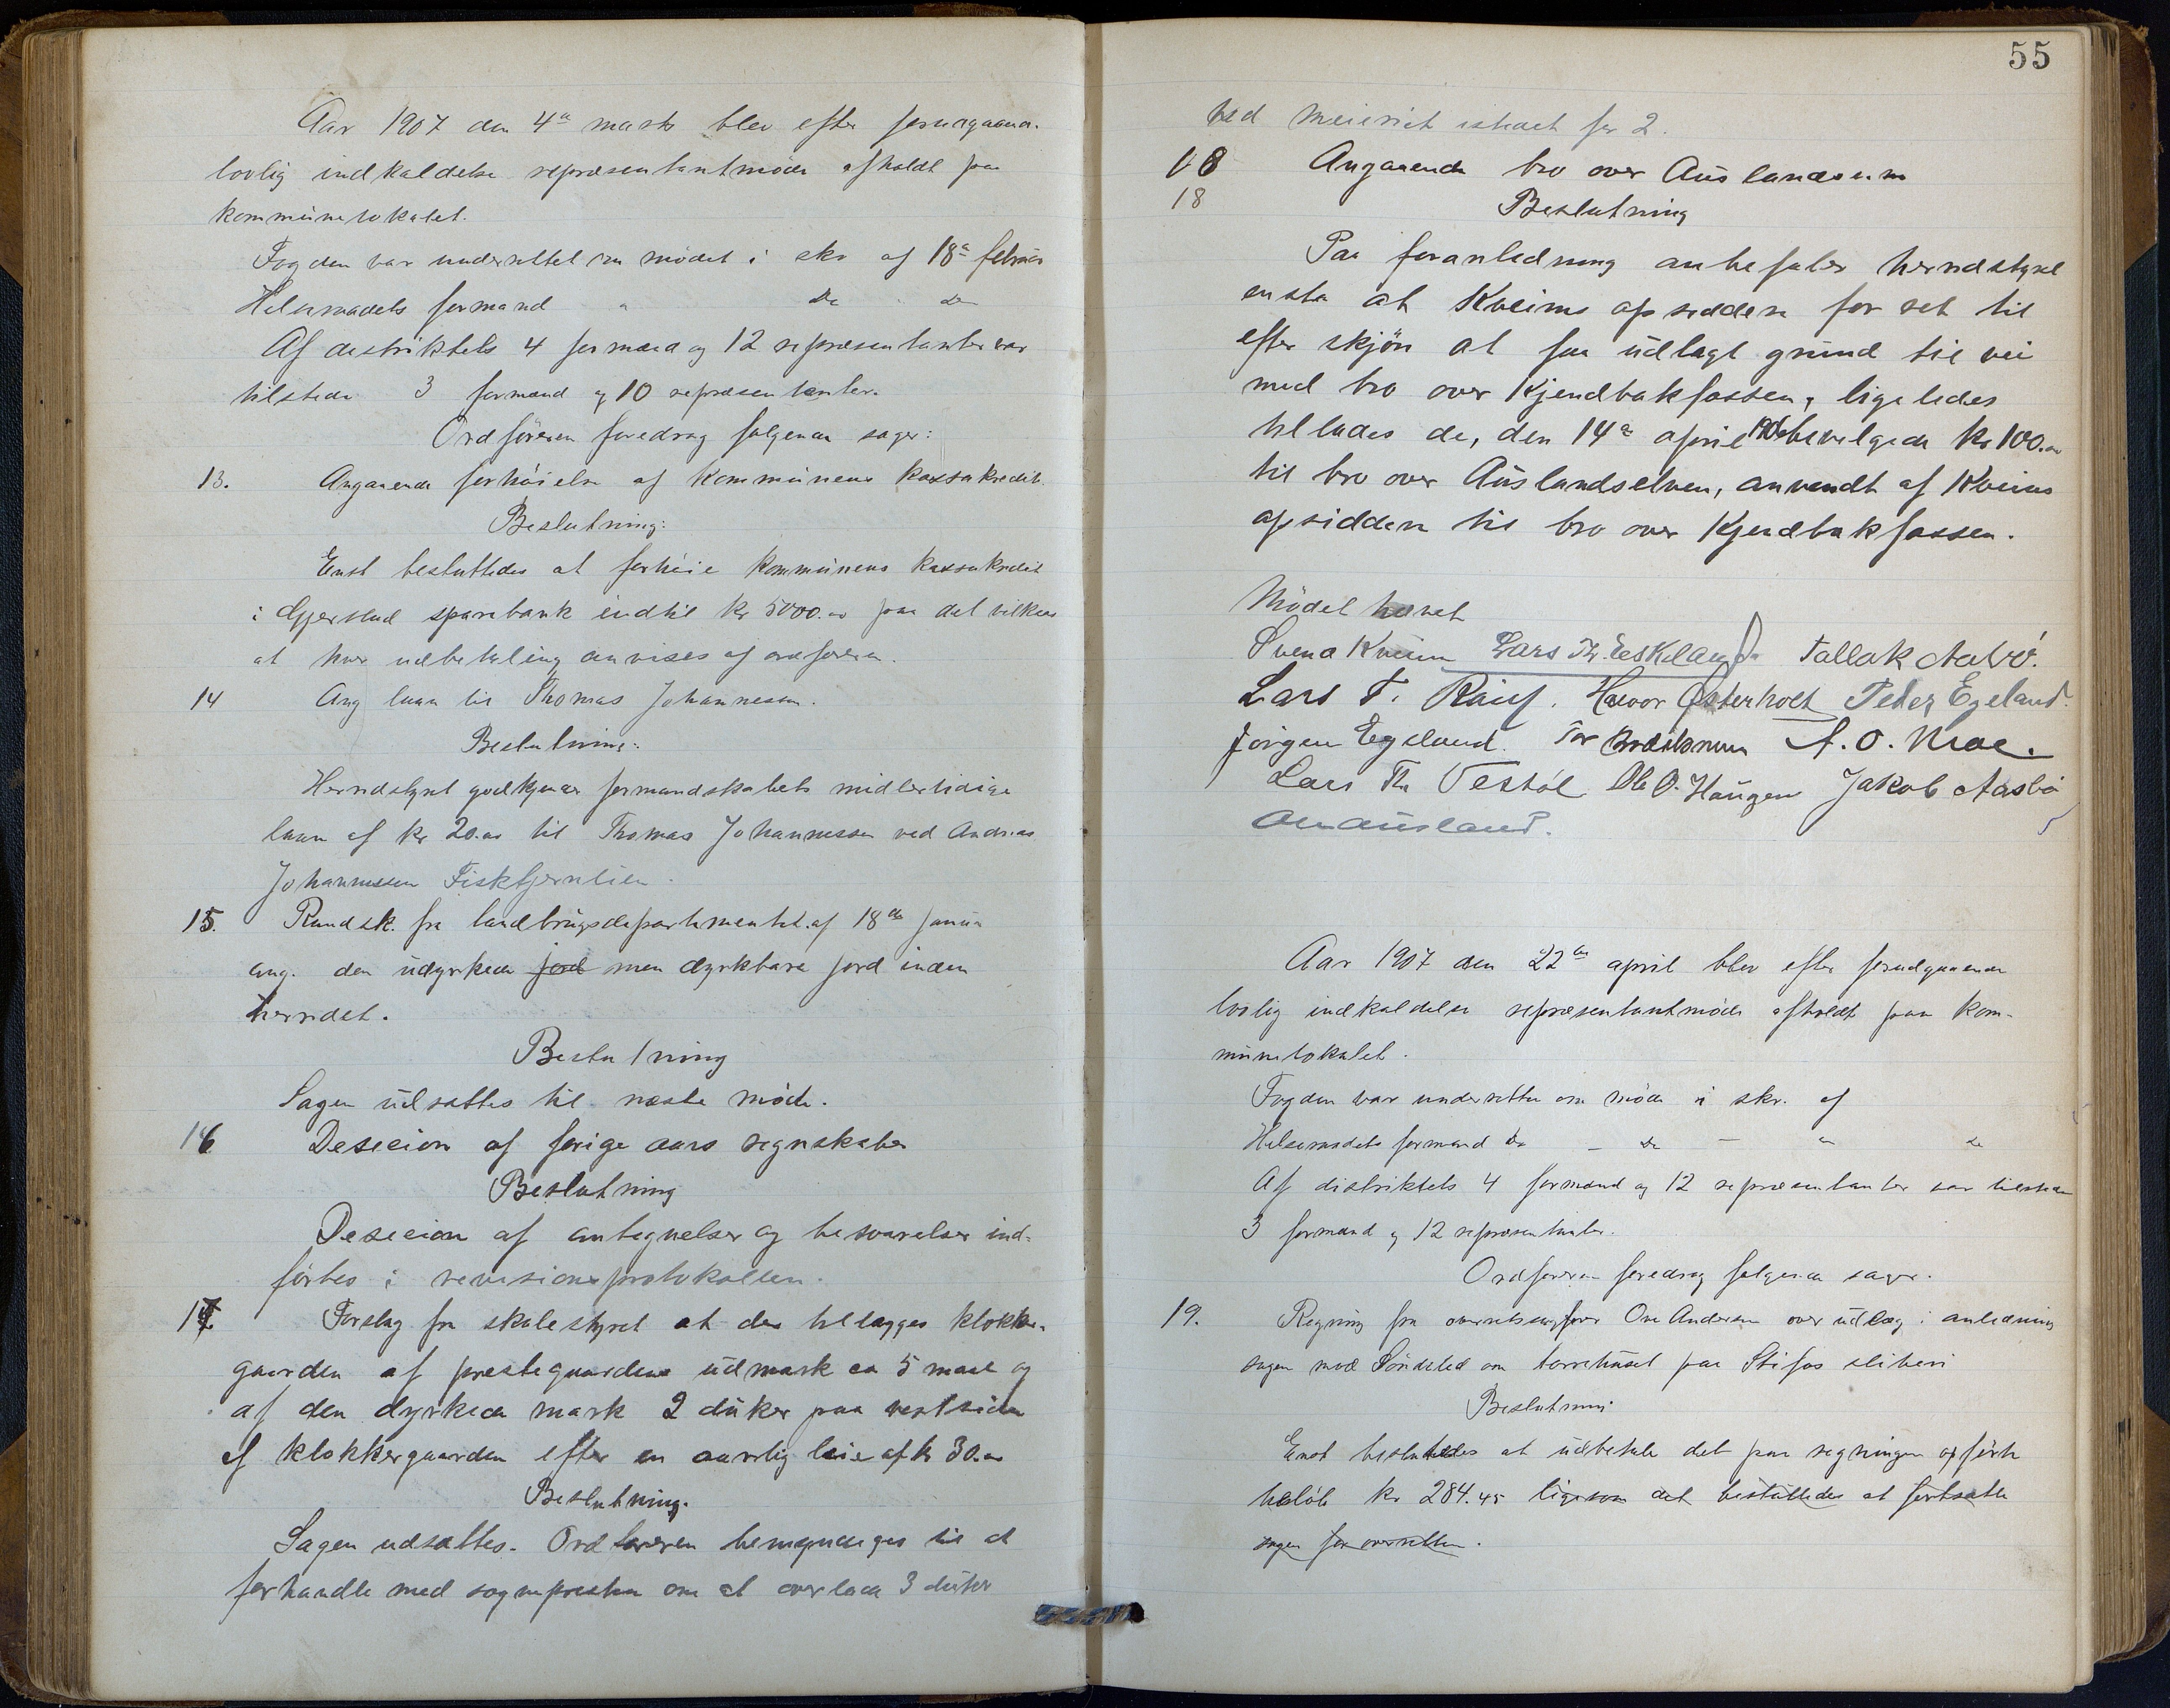 Aar 1907 den 4de marts blev efter forudgaaend.
lovlig indkaldelse repræsentantmöde afholdt paa
kommünelokalet.
Fogden var underrettet om mödet i skr af 18de februar
Helseraadets formand " do do
Af distriktets 4 formænd og 12 repræsentanter var
tilstede 3 formænd og 10 repræsentanter.
Ordföreren foredrog følgende sager:
13. Angaaende forhöielse af kommünens kassakredit.
Beslutning:
Enst besluttedes at forhöie kommünens kassakredit
i Gjerstad sparebank indtil kr 5000.00 paa det vilkaar
at hver udbetaling anvises af ordføreren.
14 Ang laan til Thomas Johannesen.
Beslutning:
Herredstyret godkjender formandskabets midlertidige
laan af kr 20.00 til Thomas Johannessen ved Andreas
Johannessen Fisktjernlien.
15. Rundsk. fra landbrügsdepartementet af 18de januar
ang. den udyrkede jord men dyrkbare jord inden
herredet.
Beslutning
Sagen üdsattes til næste möde.
16 Desecion af forige aars regnskaber
Beslutning
Desecion af antegnelser og besvarelser ind-
förtes i revisionsprotokollen.
17. Forslag fra skolestyret at der tillægges klokker-
gaarden af prestegaardens üdmark ca 5 maal og
af den dyrkede mark 2 düker paa vestsiden
af klokkergaarden efter en aarlig leie af kr 30.00
Beslutning.
Sagen udsattes. Ordføreren bemyndiges til at
forhandle med sognepresten om at overlade 3 düker
55
ved meieriet istedet for 2.
18 Angaaende bro over Auslandselven
18 Beslutning
Paa foranledning anbefaler herredstyret
enst at Kveims opsiddere for ret til
efter skjön at faa üdlagt gründ til vei
med bro over Kjendbakfossen, ligeledes
tillades de, den 14de april 1906 bevilgede kr 100.00
til bro over Aüslandselven, anvendt af Kveims
opsiddere til bro over Kjendbakfossen.
Mödet hævet
Svend Kveim Lars Th. Eskeland Tallak Aalvö.
Lars T. Raiss. Halvor Østerholt Peder Egeland.
Jörgen Egeland. Tor Brækknum A. O. Moe.
Lars Th Vestöl Ole O. Haugen Jakob Aasbö
O Aüsland.
Aar 1907 den 22de april blev efter forudgaaende
lovlig indkaldelse repræsentantmöde afholdt paa kom-
münelokalet.
Fogden var underrettet om möde i skr. af
Helseraadets formand do - do - " do
Af distriktets 4 formænd og 12 repræsentanter var tilstede
3 formænd og 12 repræsentanter.
Ordføreren foredrog følgende sager.
19. Regning fra overretssagfører Ove Andersen over üdlæg i anledning
sagen mod Söndeled om tørrehüset paa Stifos sliberi
Beslutning
Enst besluttedes at üdbetale det paa regningen opförte
belöb kr 284.45 ligesom det besluttedes at fortsætte
sagen for overretten.